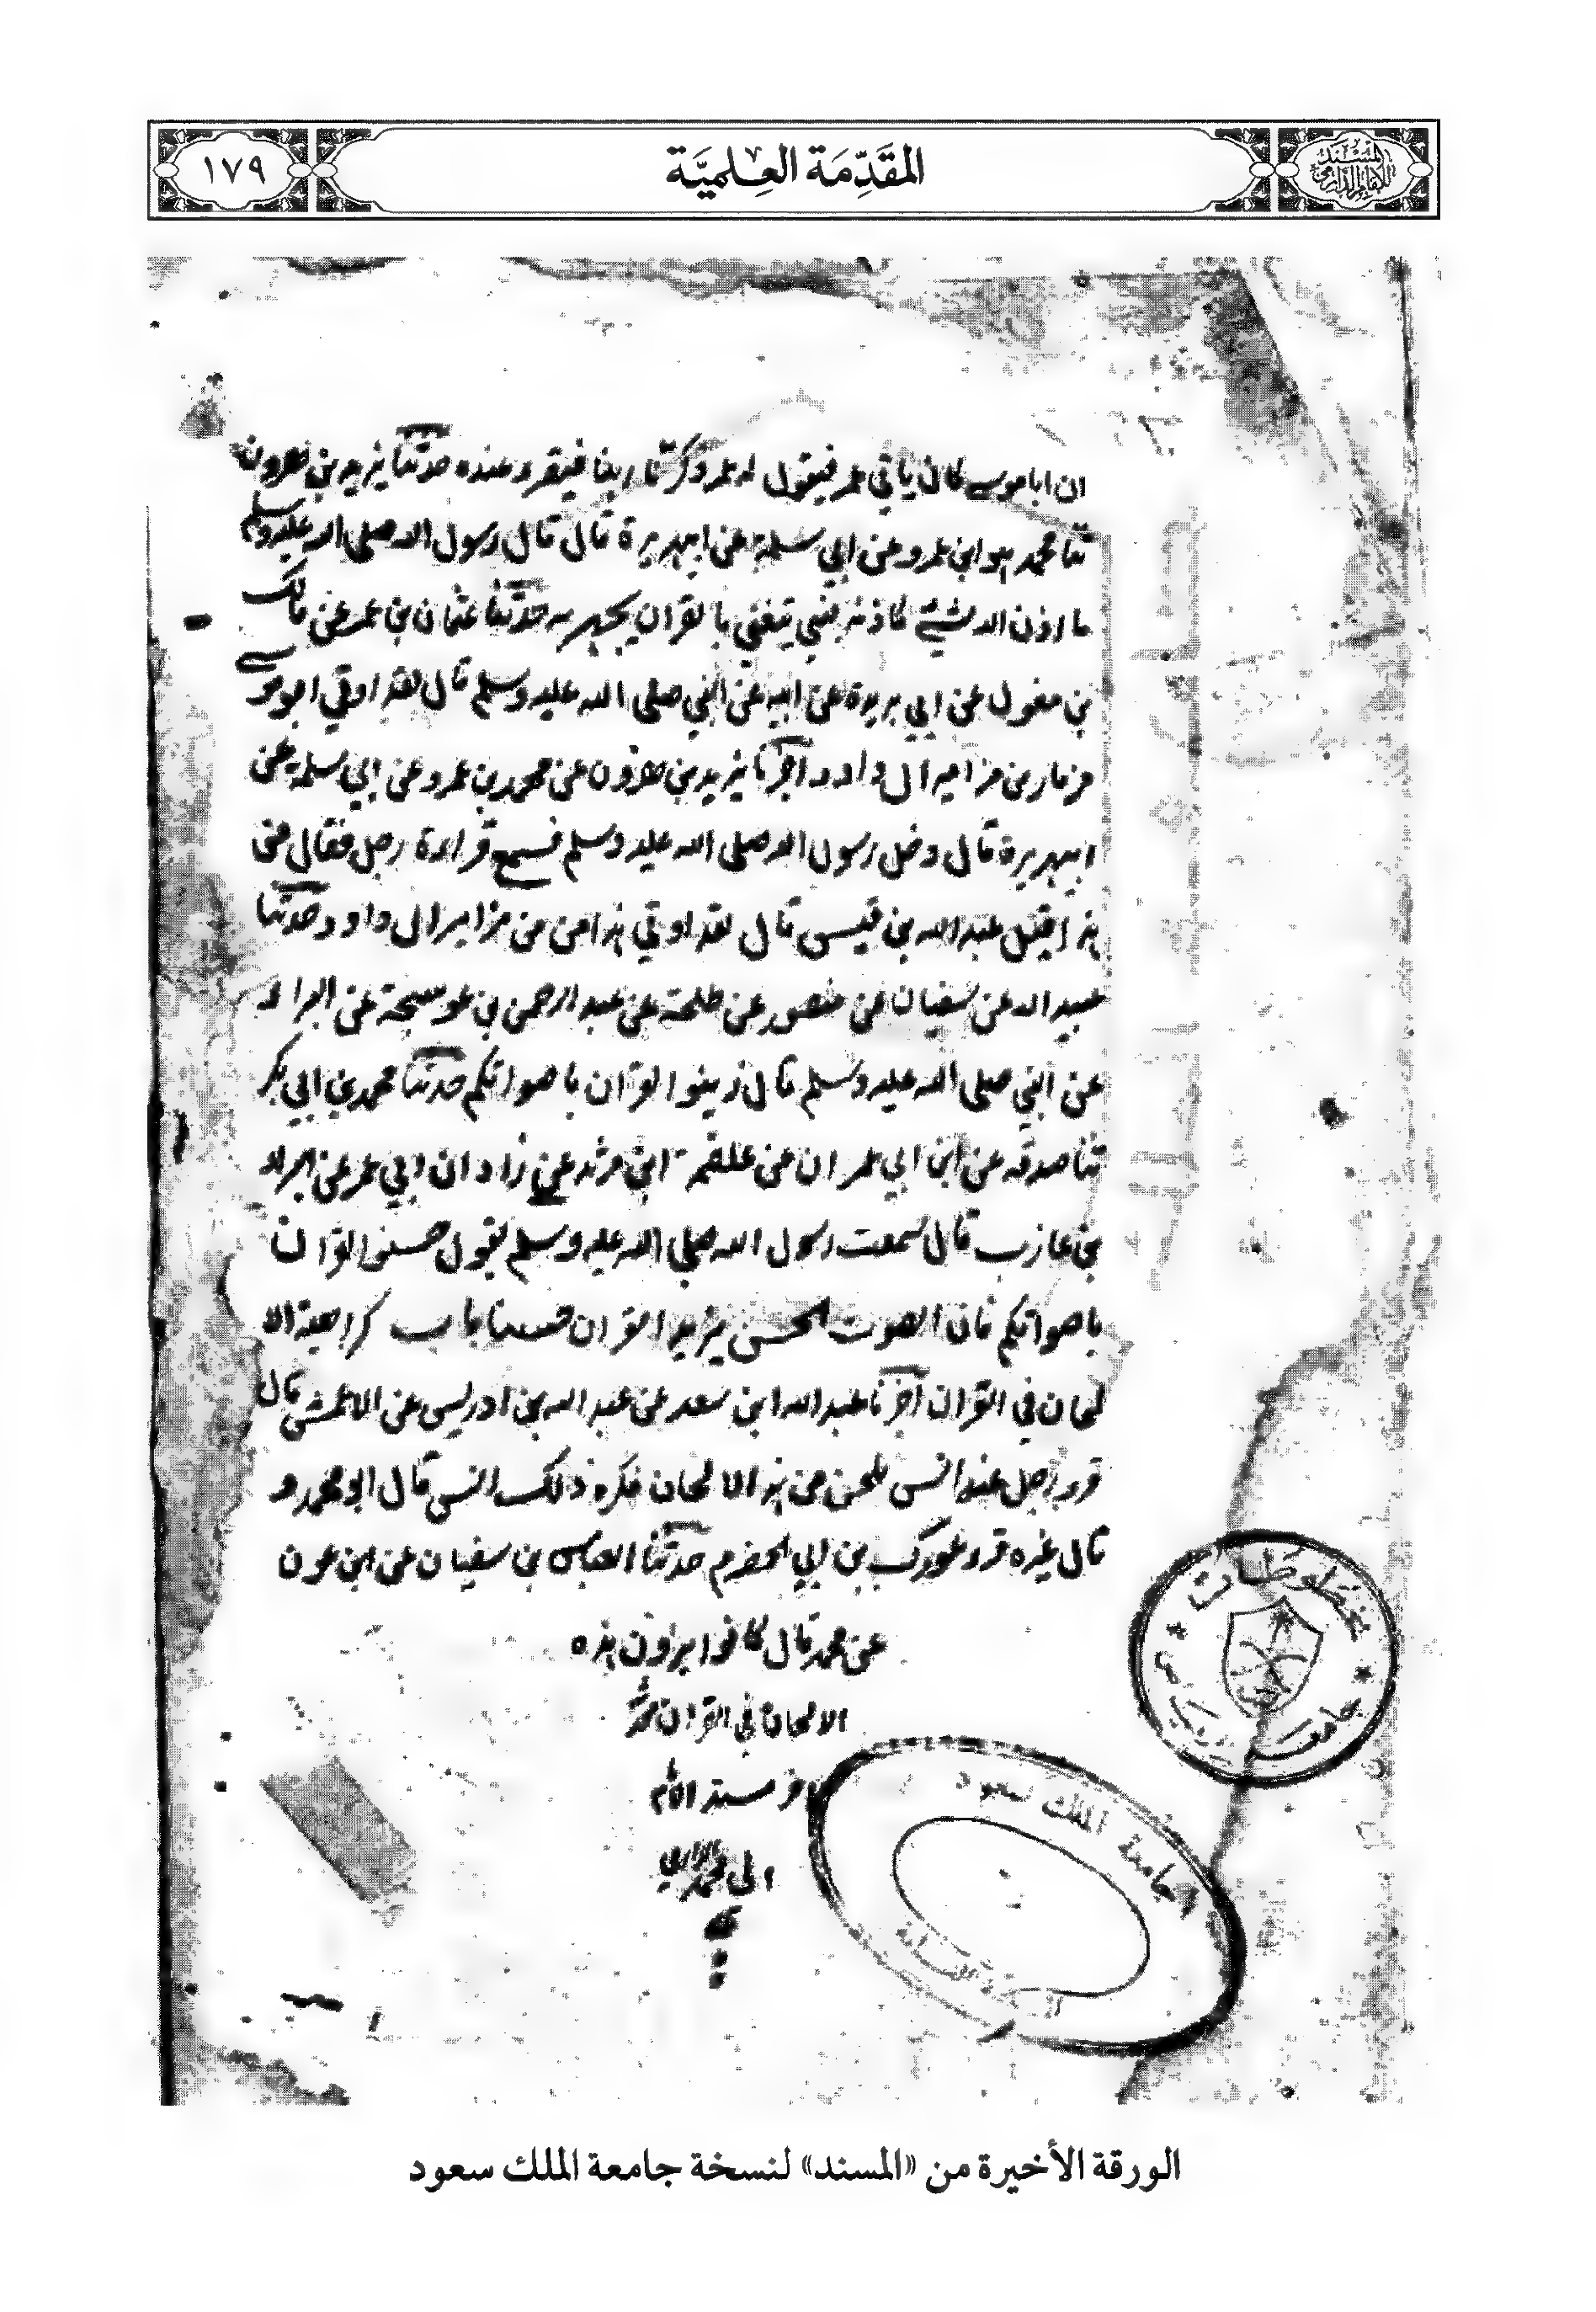 المسند للإمام الدارمي
المقَدِّمَة العِلميَّة
١٧٩
ان ابا موسى كان ياتي عمر فيقول له عمر ذكرنا ربنا فيقرء عنده حدثنا يزيد بن هرون
ثنا محمد هو ابن عمرو عن ابي سلمة عن ابيهريرة قال قال رسول الله صلى الله عليه وسلم
ما اذن الله لشئ كاذنه لنبي يتغنى بالقران يجهر به حدثنا عثمان بن عمر عن مالك
بن مغول عن ابي بريدة عن ابيه عن النبي صلى الله عليه وسلم قال لقد اوتي ابو موسى
مزمار من مزامير ال داود اخبرنا يزيد بن هرون عن محمد بن عمرو عن ابي سلمة عن
ابيهريرة قال دخل رسول الله صلى الله عليه وسلم فسمع قراءة رجل فقال من
هذا قيل عبد الله بن قيس قال لقد اوتي هذا من من مزامير ال داود حدثنا
عبيد الله عن سفيان عن منصور عن طلحة عن عبد الرحمن بن عوسجة عن البراء
عن النبي صلى الله عليه وسلم قال زينوا القران باصواتكم حدثنا محمد بن ابي بكر
ثنا صدقه عن ابن ابي عمران عن علقمة ابن مرثد عن زاد ان ابي عمر عن البراء
بن عازب قال سمعت رسول الله صلى الله عليه وسلم يقول حسنوا القران
باصواتكم فان الصوت الحسن يزيد القران حسنا باب كراهية الا
لحان في القران اخبرنا عبد الله ابن سعد عن عبد الله بن ادريس عن الاعمش قال
قرء رجل عند انس بلحن من هذه الالحان فكره ذلك انس قال ابو محمد و
قال غيره قرء غورك بن ابي الحضرم حدثنا العباس بن سفيان عن ابن عون
عن محمد قال كانوا يرون هذه
الالحان في القران محدثة
اخر مسند الامام
ابي محمد الدارمي
مخطوطات
جامعة الرياض
جامعة الملك سعود
الورقة الأخيرة من «المسند» لنسخة جامعة الملك سعود